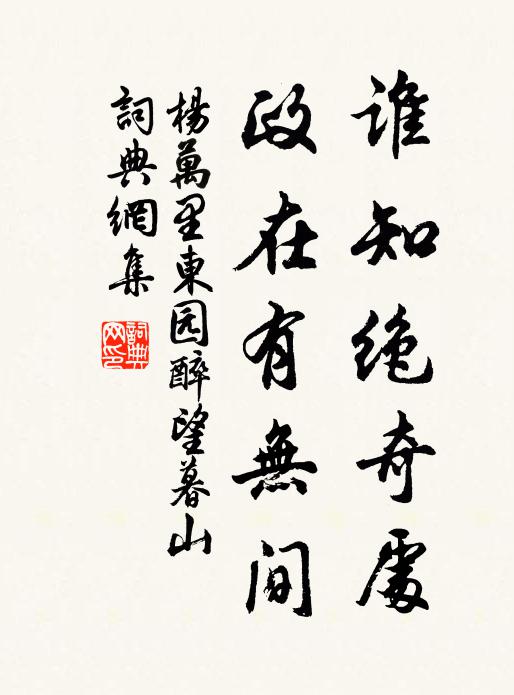 誰知绝奇處
政在有無间
楊萬里東园醉望暮山
詞典網集
詞典网印